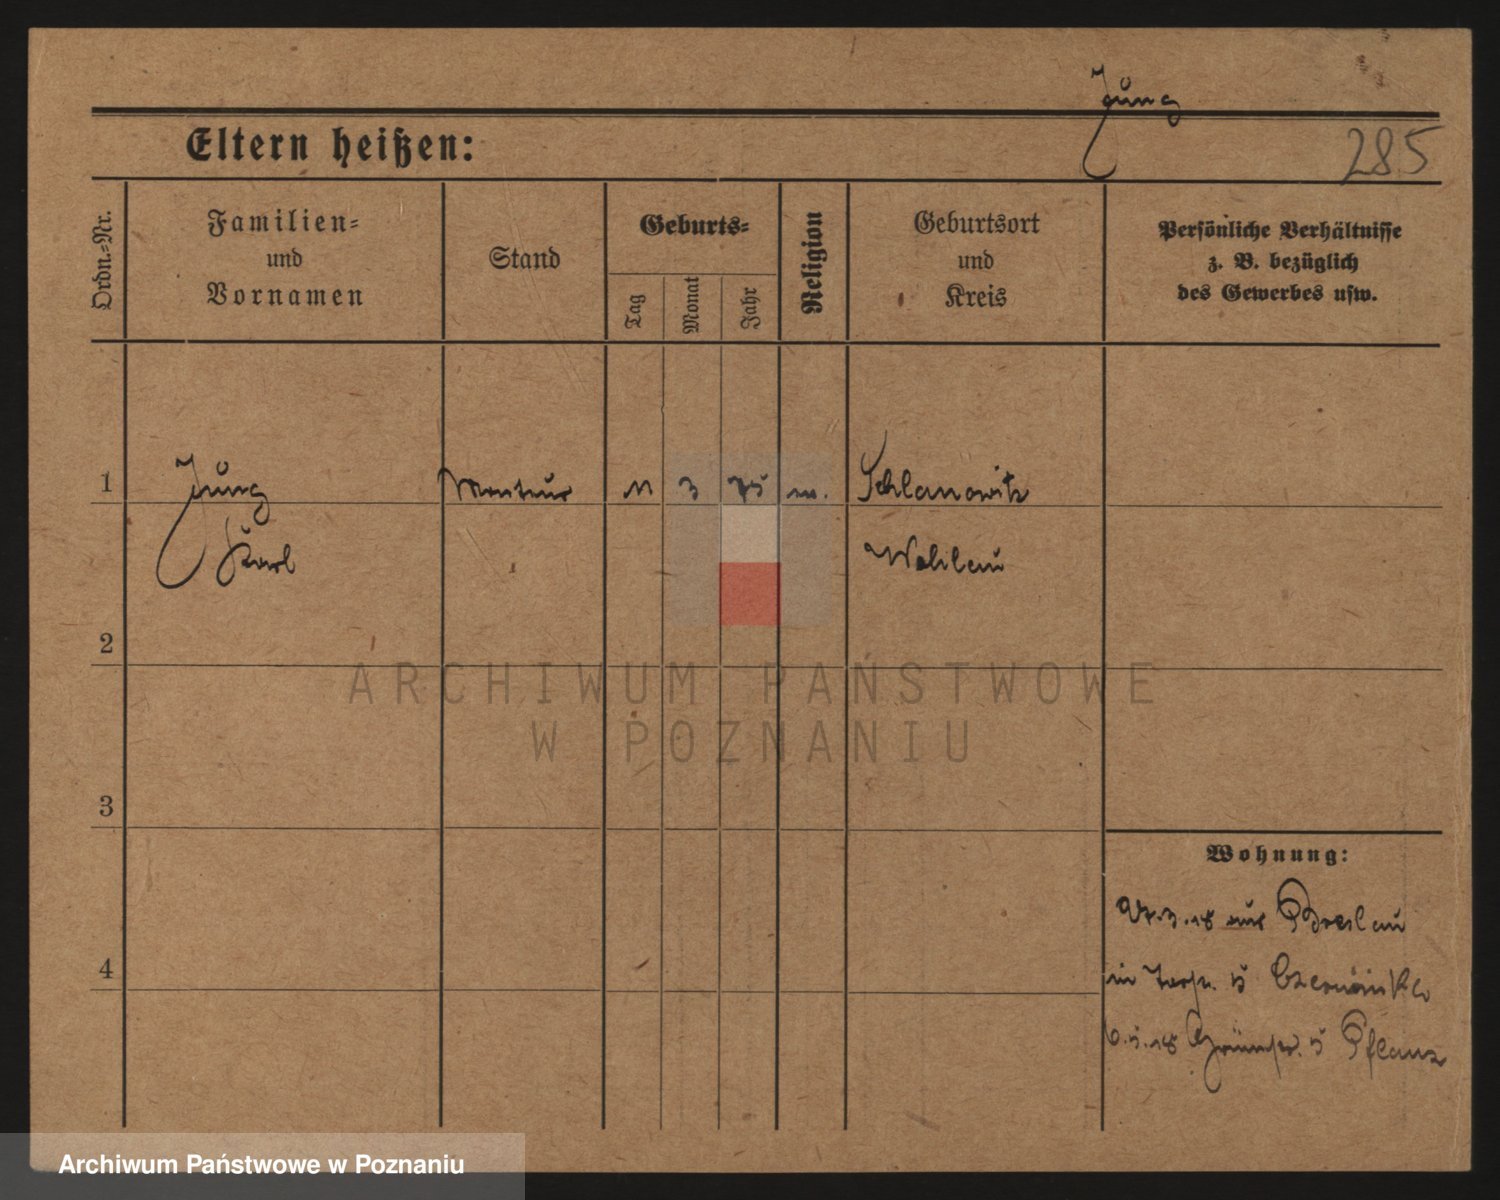 Jung
Eltern heißen:
285
Ordn.=Nr.
Familien=
und
Vornamen
Stand
Geburts=
Tag
Monat
Jahr
Religion
Geburtsort
und
Kreis
Persönliche Verhältnisse
z. B. bezüglich
des Gewerbes usw.
1
Jung Monteur 11 3 75 Schlanowitz
Karl Wohlau
2
ARCHIWUM PAŃSTWOWE
W POZNANIU
3
Wohnung:
27.3.18 aus Breslau
in 5
4
6.5.18 5
Archiwum Państwowe w Poznaniu